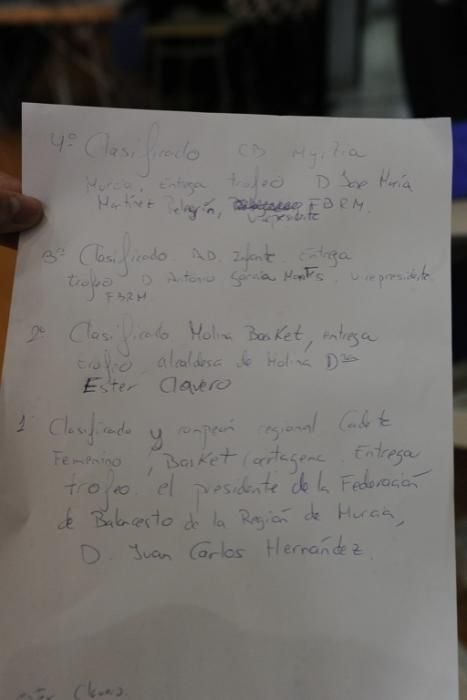 4º Clasificado CB Myrtia
Murcia, entrega trofeo D Jose María
Martínez Pelegrín, FBRM.
vicepresidente
3º Clasificado. AD. Infante. entrega
trofeo D Antonio García Montes, vicepresidente
FBRM
2º Clasificado Molina Basket, entrega
trofeo. alcaldesa de Molina Dña
Ester Clavero
1 Clasificado y campeón regional Cadete
Femenino, Basket Cartagena. Entrega
trofeo el presidente de la Federación
de Baloncesto de la Región de Murcia,
D. Juan Carlos Hernández.
Ester Clavero.